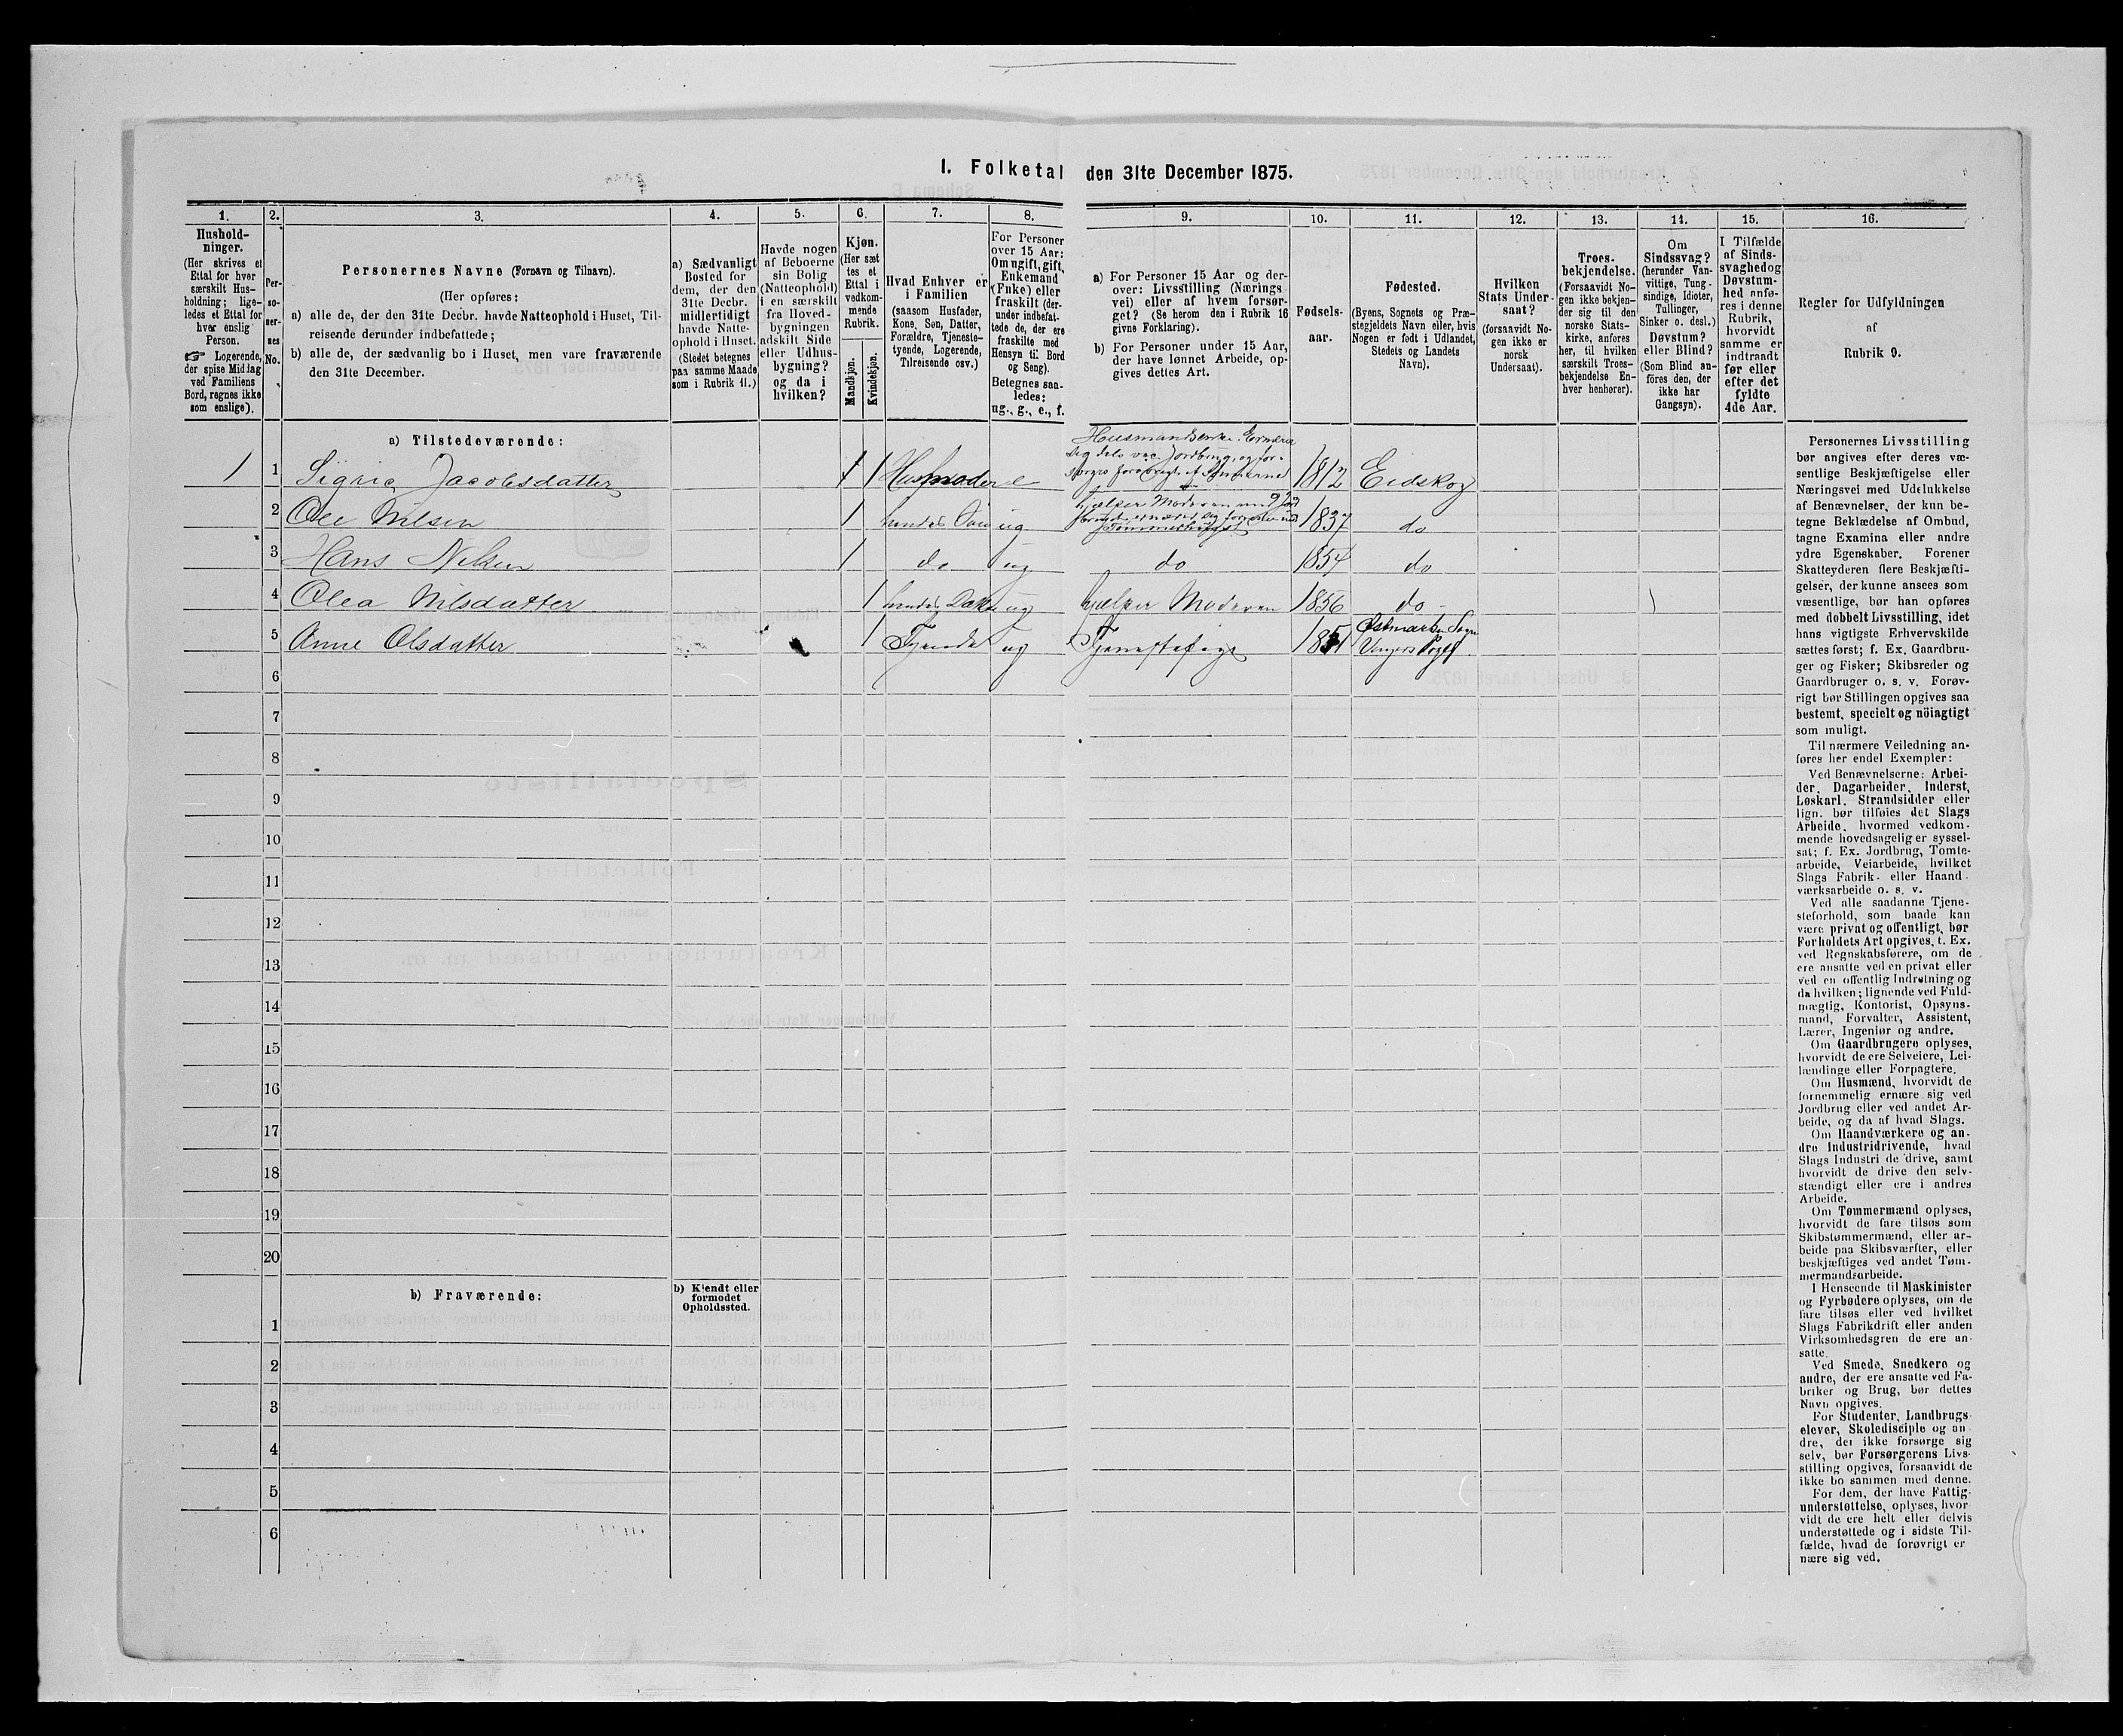 I. Folketal den 31te December 1875.
1.
2.
3.
4.
5.
6.
7.
8.
9.
10.
11.
12.
13.
14.
15.
16.
Hushold-
ninger.
(Her skrives et
Ettal for hver
særskilt Hus-
holdning; lige-
ledes et Ettal for
hver enslig
Person.
☞ Logerende,
der spise Middag
ved Familiens
Bord, regnes ikke
som enslige).
Per-
so-
ner-
nes
No.
Personernes Navne (Fornavn og Tilnavn).
(Her opføres:
a) alle de, der den 31te Decbr. havde Natteophold i Huset, Til-
reisende derunder indbefattede;
b) alle de, der sædvanlig bo i Huset, men vare fraværende
den 31te December.
a) Sædvanligt
Bosted for
dem, der den
31te Decbr.
midlertidigt
havde Natte-
ophold i Huset.
(Stedet betegnes
paa samme Maade
som i Rubrik 11.)
Havde nogen
af Beboerne
sin Bolig
(Natteophold)
i en særskilt
fra Hoved-
bygningen
adskilt Side
eller Udhus-
bygning?
og da i
hvilken?
Kjøn.
(Her sæt
tes et
Ettal i
vedkom-
mende
Rubrik.
Mandkjøn.
Kvindekjøn.
Hvad Enhver er
i Familien
(saasom Husfader,
Kone, Søn, Datter,
Forældre, Tjeneste-
tyende, Logerende,
Tilreisende osv.)
For Personer
over 15 Aar:
Om ugift, gift,
Enkemand
(Enke) eller
fraskilt (der-
under indbefat-
tede de, der ere
fraskilte med
Hensyn til Bord
og Seng).
Betegnes saa-
ledes:
ug., g., e., f.
a) For Personer 15 Aar og der-
over: Livsstilling (Nærings
vei) eller af hvem forsør-
get? (Se herom den i Rubrik 16
givne Forklaring).
b) For Personer under 15 Aar,
der have lønnet Arbeide, op-
gives dettes Art.
Fødsels-
aar.
Fødested.
(Byens, Sognets og Præ-
stegjeldets Navn eller, hvis
Nogen er født i Udlandet,
Stedets og Landets
Navn).
Hvilken
Stats Under-
saat?
(forsaavidt No-
gen ikke er
norsk
Undersaat).
Troes-
bekjendelse.
(Forsaavidt No-
gen ikke bekjen-
der sig til den
norske Stats-
kirke, anføres
her, til hvilken
særskilt Troes-
bekjendelse En-
hver henhører).
Om
Sindssvag?
(herunder Van-
vittige, Tung-
sindige, Idioter,
Tullinger,
Sinker o. desl.)
Døvstum?
eller Blind?
(Som Blind an-
føres den, der
ikke har
Gangsyn).
I Tilfælde
af Sinds-
svaghed og
Døvstum-
hed anfø-
res i denne
Rubrik,
hvorvidt
samme er
indtraadt
før eller
efter det
fyldte
4de Aar.
Regler for Udfyldningen
af
Rubrik 9.
a) Tilstedeværende:
1 1 Sigrid Jacobsdatter 1 Husmoder e Husmandsenke. Ernærer sig dels ved Jordbrug, og for- 1812 Eidskog
2 Ole Nilsen 1 hendes Søn ug hjælper Moderen med 1837 do
3 Hans Nilsen 1 do ug do 1854 do
4 Olea Nilsdatter 1 hendes Datter ug hjælper Moderen 1856 do
5 Anne Olsdatter 1 Tyende ug Tjenestepige 1851 Østmarken Sogn
Vingers Prgj.
6
7
8
9
10
11
12
13
14
15
16
17
18
19
20
b) Fraværende:
b) Kjendt eller
formodet
Opholdssted.
1
2
3
4
5
6
Personernes Livsstilling
bør angives efter deres væ-
sentlige Beskjæftigelse eller
Næringsvei med Udelukkelse
af Benævnelser, der kun be-
tegne Beklædelse af Ombud,
tagne Examina eller andre
ydre Egenskaber. Forener
Skatteyderen flere Beskjæfti-
gelser, der kunne ansees som
væsentlige, bør han opføres
med dobbelt Livsstilling, idet
hans vigtigste Erhvervskilde
sættes først; f. Ex. Gaardbru-
ger og Fisker; Skibsreder og
Gaardbruger o. s. v. Forøv-
rigt bør Stillingen opgives saa
bestemt, specielt og nøiagtigt
som muligt.
Til nærmere Veiledning an-
føres her endel Exempler:
Ved Benævnelserne: Arbei-
der, Dagarbeider, Inderst,
Løskarl, Strandsidder eller
lign. bør tilføies det Slags
Arbeide, hvormed vedkom-
mende hovedsagelig er syssel-
sat; f. Ex. Jordbrug, Tomte-
arbeide, Veiarbeide, hvilket
Slags Fabrik- eller Haand-
værksarbeide o. s. v.
Ved alle saadanne Tjene-
steforhold, som baade kan
være privat og offentligt, bør
Forholdets Art opgives, t. Ex.
ved Regnskabsførere, om de
ere ansatte ved en privat eller
ved en offentlig Indretning og
da hvilken; lignende ved Fuld-
mægtig, Kontorist, Opsyns-
mand, Forvalter, Assistent,
Lærer, Ingeniør og andre.
Om Gaardbrugere oplyses,
hvorvidt de ere Selveiere, Lei-
lændinge eller Forpagtere.
Om Husmænd, hvorvidt de
fornemmelig ernære sig ved
Jordbrug eller ved andet Ar-
beide, og da af hvad Slags.
Om Haandværkere og an-
dre Industridrivende, hvad
Slags Industri de drive, samt
hvorvidt de drive den selv-
stændigt eller ere i andres
Arbeide.
Om Tømmermænd oplyses,
hvorvidt de fare tilsøs som
Skibstømmermænd, eller ar-
beide paa Skibsværfter, eller
beskjæftiges ved andet Tøm-
mermandsarbeide.
I Henseende til Maskinister
og Fyrbødere oplyses, om de
fare tilsøs eller ved hvilket
Slags Fabrikdrift eller anden
Virksomhedsgren de ere an-
satte.
Ved Smede, Snedkere og
andre, der ere ansatte ved Fa-
briker og Brug, bør dettes
Navn opgives.
For Studenter, Landbrugs-
elever, Skoledisciple og an-
dre, der ikke forsørge sig
selv, bør Forsørgerens Livs-
stilling opgives, forsaavidt de
ikke bo sammen med denne.
For dem, der have Fattig-
understøttelse, oplyses, hvor
vidt de ere helt eller delvis
understøttede og i sidste Til-
fælde, hvad de forøvrigt er
nære sig ved.